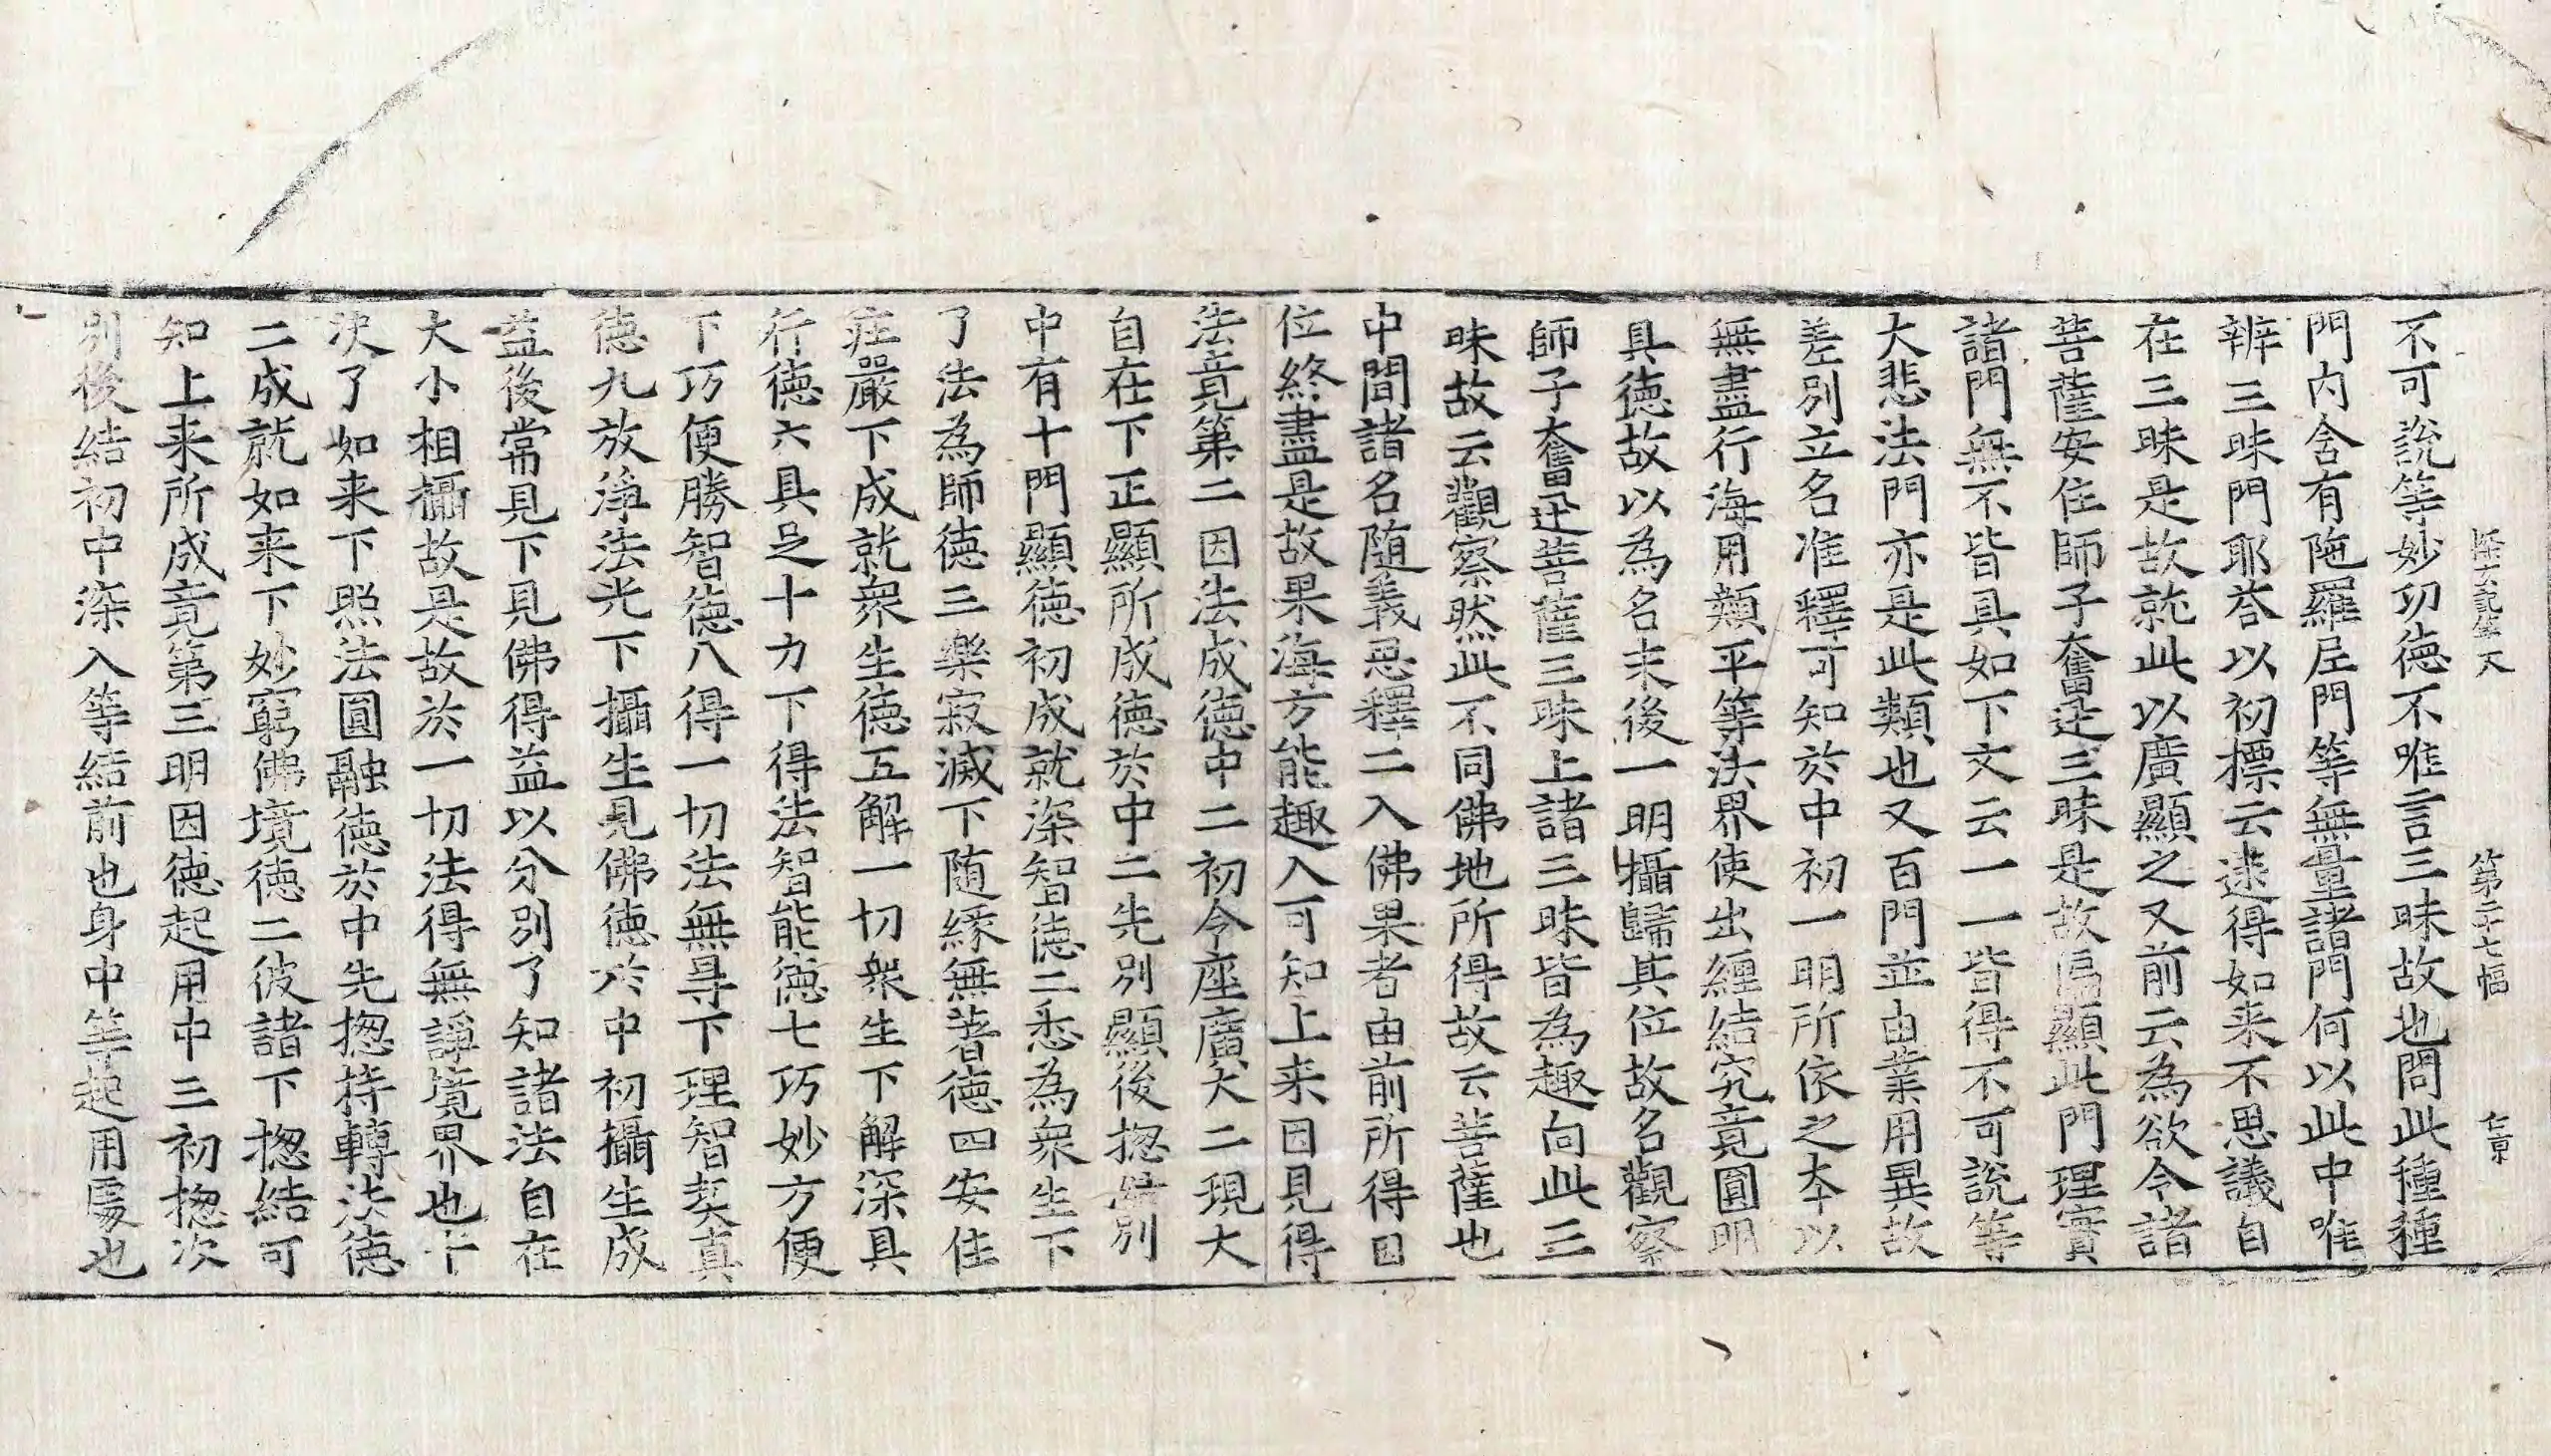 第二十七幅
不可說等妙功徳不唯言三昧故也問此種種
門内含有陁羅尼門等無量諸門何以此中唯
辨三昧門耶荅以初摽云逮得如来不思議自
在三昧是故就此以廣顯之又前云為欲令諸
菩薩安住師子奮迅三昧是故偏顯此門理實
諸門無不皆具如下文云一一皆得不可說等
大悲法門亦是此類也又百門並由業用異故
差別立名准釋可知於中初一明所依之本以
無盡行海用顯平等法界使出纏結究竟圓明
具徳故以為名末後一明攝歸其位故名觀察
師子奮迅菩薩三昧上諸三昧皆為趣向此三
昧故云觀察然此不同佛地所得故云菩薩也
中間諸名随義思釋二入佛果者由前所得因
位終盡是故果海方能趣入可知上来因見得
法竟第二因法成徳中二初令座廣大二現大
自在下正顯所成徳於中二先別顯後揔結別
中有十門顯徳初成就深智徳二悉為衆生下
了法為師徳三樂寂滅下随縁無著徳四安住
莊嚴下成就衆生徳五解一切衆生下解深具
行徳六具足十力下得法智能徳七巧妙方便
下巧便勝智徳八得一切法無㝵下理智契真
徳九放淨法光下攝生見佛徳於中初攝生成
益後常見下見佛得益以分別了知諸法自在
大小相攝故是故於一切法得無諍境界也十
决了如来下照法圓融徳於中先揔持轉法徳
二成就如来下妙窮佛境徳二彼諸下揔結可
知上来所成竟第三明因徳起用中三初揔次
別後結初中深入等結前也身中等起用處也